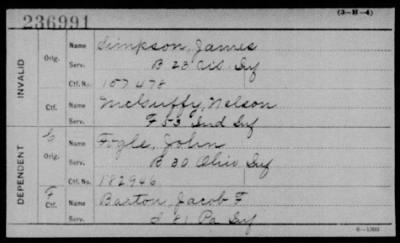 (3-H-4)
236991
INVALID
Orig.
Name Simpson, James
Serv. B 23 Wis. Inf
Ctf. No. 157478
Ctf.
Name McGuffy, Nelson
Serv. F 53 Ind Inf
DEPENDENT
Orig.
Name Fogle, John
Serv. B 30 Ohio Inf
Ctf. No. 182946
Ctf.
Name Barton, Jacob F
Serv. I 81 Pa Inf